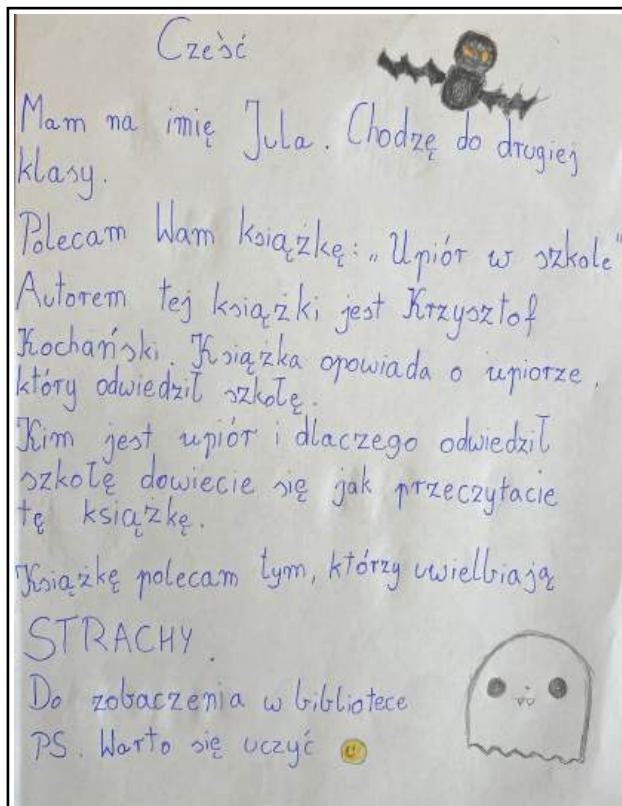 Cześć
Mam na imię Jula. Chodzę do drugiej
klasy.
Polecam Wam książkę: „Upiór w szkole"
Autorem tej książki jest Krzysztof
Kochański. Książka opowiada o upiorze,
który odwiedził szkołę.
Kim jest upiór i dlaczego odwiedził
szkołę dowiecie się jak przeczytacie
tę książkę.
Książkę polecam tym, którzy uwielbiają
STRACHY.
Do zobaczenia w bibliotece
PS. Warto się uczyć